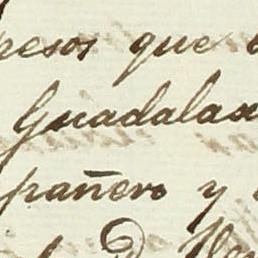 pesos que
Guadalax
pañero y